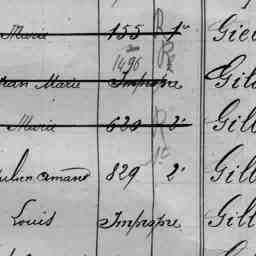 Marie 155 R 1e Gie
1496 R
Jean Marie Impropre Gil
Marie 620 R 2e Gill
Julien Amand 829 2e Gill
Louis Impropre Gill